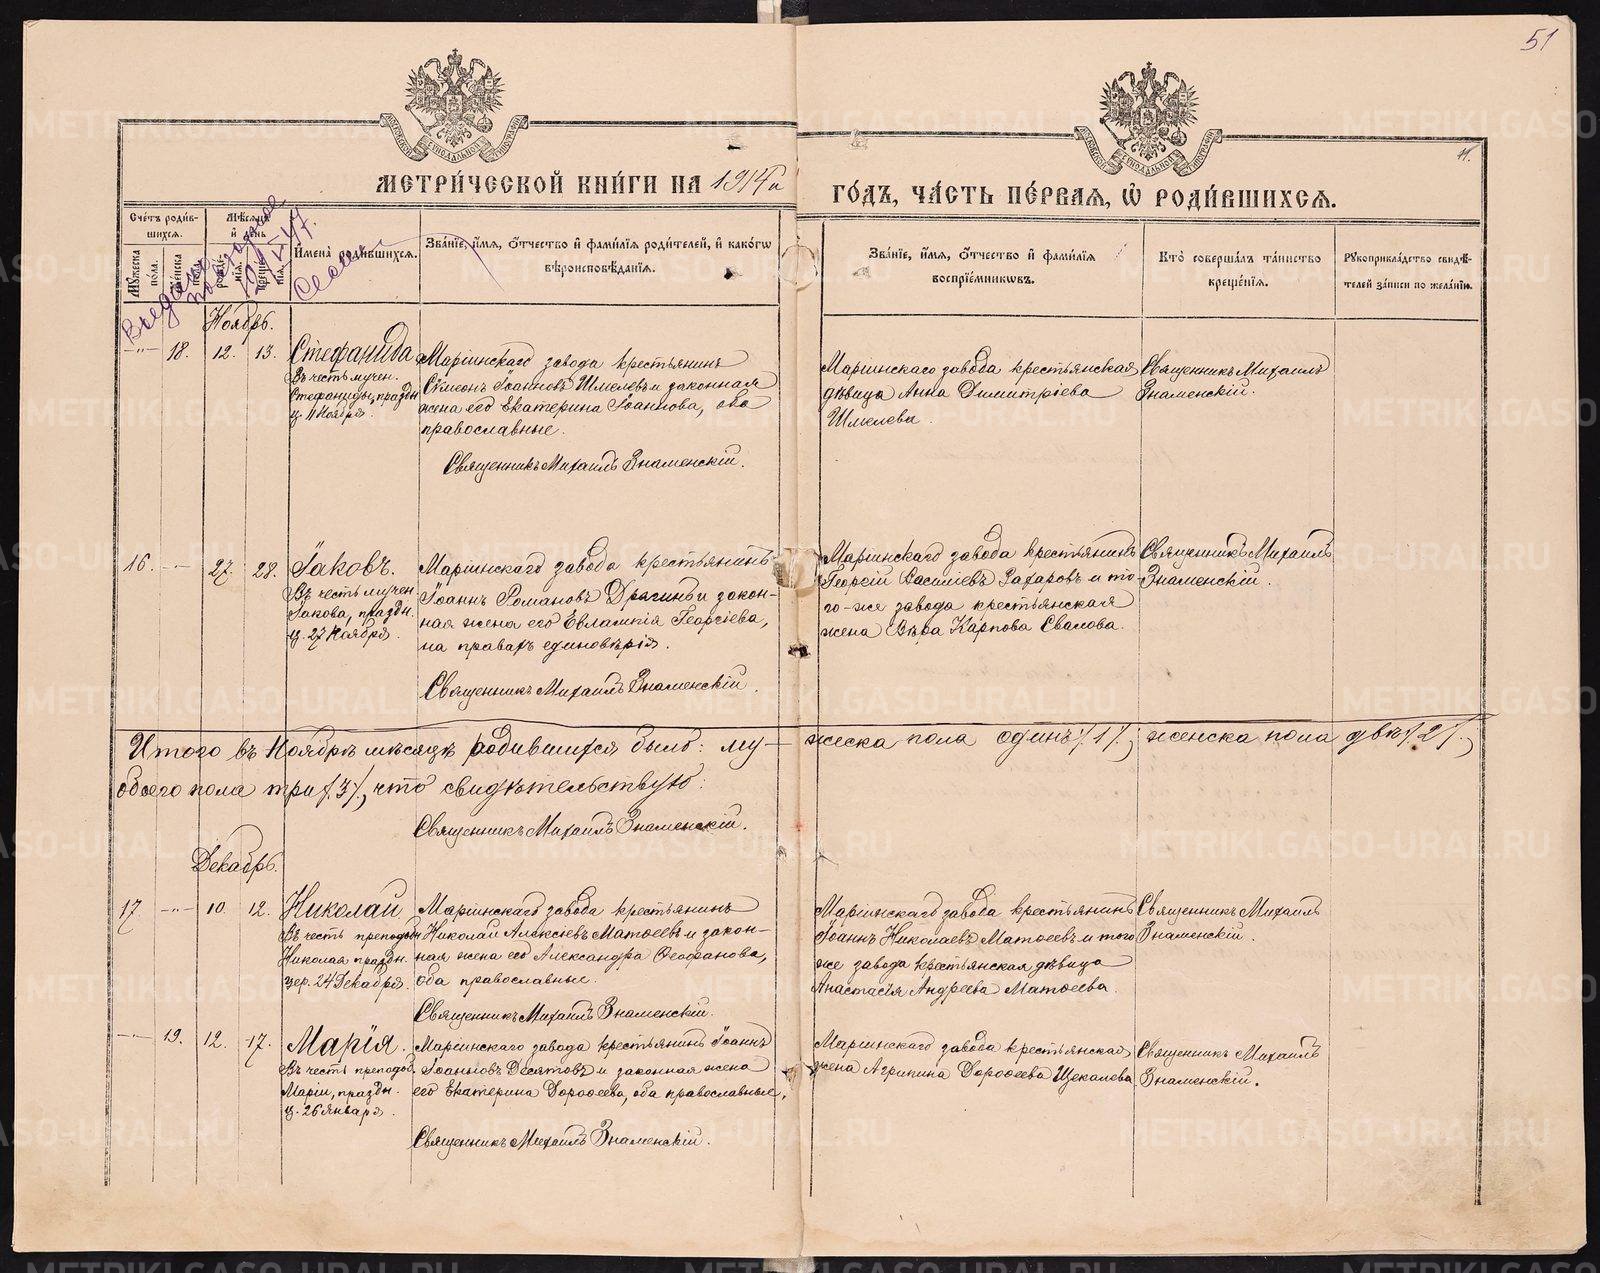 51
МОСКОВСКОЙ СѴНОДАЛЬНОЙ ТИПОГРАФІИ
МОСКОВСКОЙ СѴНОДАЛЬНОЙ ТИПОГРАФІИ
МЕТРИ́ЧЕСКОЙ КНИ́ГИ НА 1914й
ГО́ДЪ, ЧА́СТЬ ПЕ́РВАЯ, Ѽ РОДИ́ВШИХСЯ.
Сче́тъ роди́в-
шихся.
Мꙋ́жеска по́ла.
Же́нска по́ла.
Мѣ́сяцъ и҆ де́нь
рожде́нїя.
креще́нїя.
И҆мена̀ роди́вшихся.
Зва́нїе, и҆́мя, ѻ҆́тчество и҆ фами́лїя роди́телей, и҆ како́гѡ
вѣроисповѣ́данїя.
Зва́нїе, и҆́мя, ѻ҆́тчество и҆ фами́лїя
воспрїе́мникѡвъ.
Кто̀ соверша́лъ та́инство
креще́нїя.
Рꙋкоприкла́дство свидѣ́-
телей за́писи по жела́нїю.
Выдано
повторное
Ноябрь.
-"- 18. 12. 13. Стефанида
Въ честь мучен.
Стефаниды, праздн.
ц. 11 Ноября.
Маріинскаго завода крестьянинъ
Симеонъ Іоанновъ Шмелевъ и законная
жена его Екатерина Іоаннова, оба
православные.
Священникъ Михаилъ Знаменскій.
Маріинскаго завода крестьянская
дѣвица Анна Димитріева
Шмелева.
Священникъ Михаилъ
Знаменскій.
16. -"- 27. 28. Іаковъ.
Въ честь мучен.
Іакова, праздн.
ц. 27 Ноября.
Маріинскаго завода крестьянинъ
Іоаннъ Романовъ Драгинъ и закон-
ная жена его Евлампія Георгіева,
на правахъ единовѣрія.
Священникъ Михаилъ Знаменскій.
Маріинскаго завода крестьянинъ
Георгій Василіевъ Захаровъ и то-
го-же завода крестьянская
жена Вѣра Карпова Свалова.
Священникъ Михаилъ
Знаменскій.
Итого въ Ноябрѣ мѣсяцѣ родившихся было: му-жеска пола одинъ /.1/.; женска пола двѣ /.2/.;
обоего пола три /.3/., что свидѣтельствую:
Священникъ Михаилъ Знаменскій.
Декабрь.
17. -"- 10. 12. Николай
Въ честь преподобн.
Николая праздн.
цер. 24 Декабря.
Маріинскаго завода крестьянинъ
Николай Алексѣевъ Матѳеевъ и закон-
ная жена его Александра Ѳеофанова,
оба православные.
Священникъ Михаилъ Знаменскій.
Маріинскаго завода крестьянинъ
Іоаннъ Николаевъ Матѳеевъ и того
же завода крестьянская дѣвица
Анастасія Андреева Матѳеева.
Священникъ Михаилъ
Знаменскій.
-"- 19. 12. 17. Марія.
Въ честь преподоб.
Маріи, праздн.
ц. 26 Января.
Маріинскаго завода крестьянинъ Іоаннъ
Іоанновъ Десятовъ и законная жена
его Екатерина Дороѳеева, оба православные.
Священникъ Михаилъ Знаменскій.
Маріинскаго завода крестьянская
жена Агрипина Дороѳеева Щекалева.
Священникъ Михаилъ
Знаменскій.
METRIKI.GASO-URAL.RU